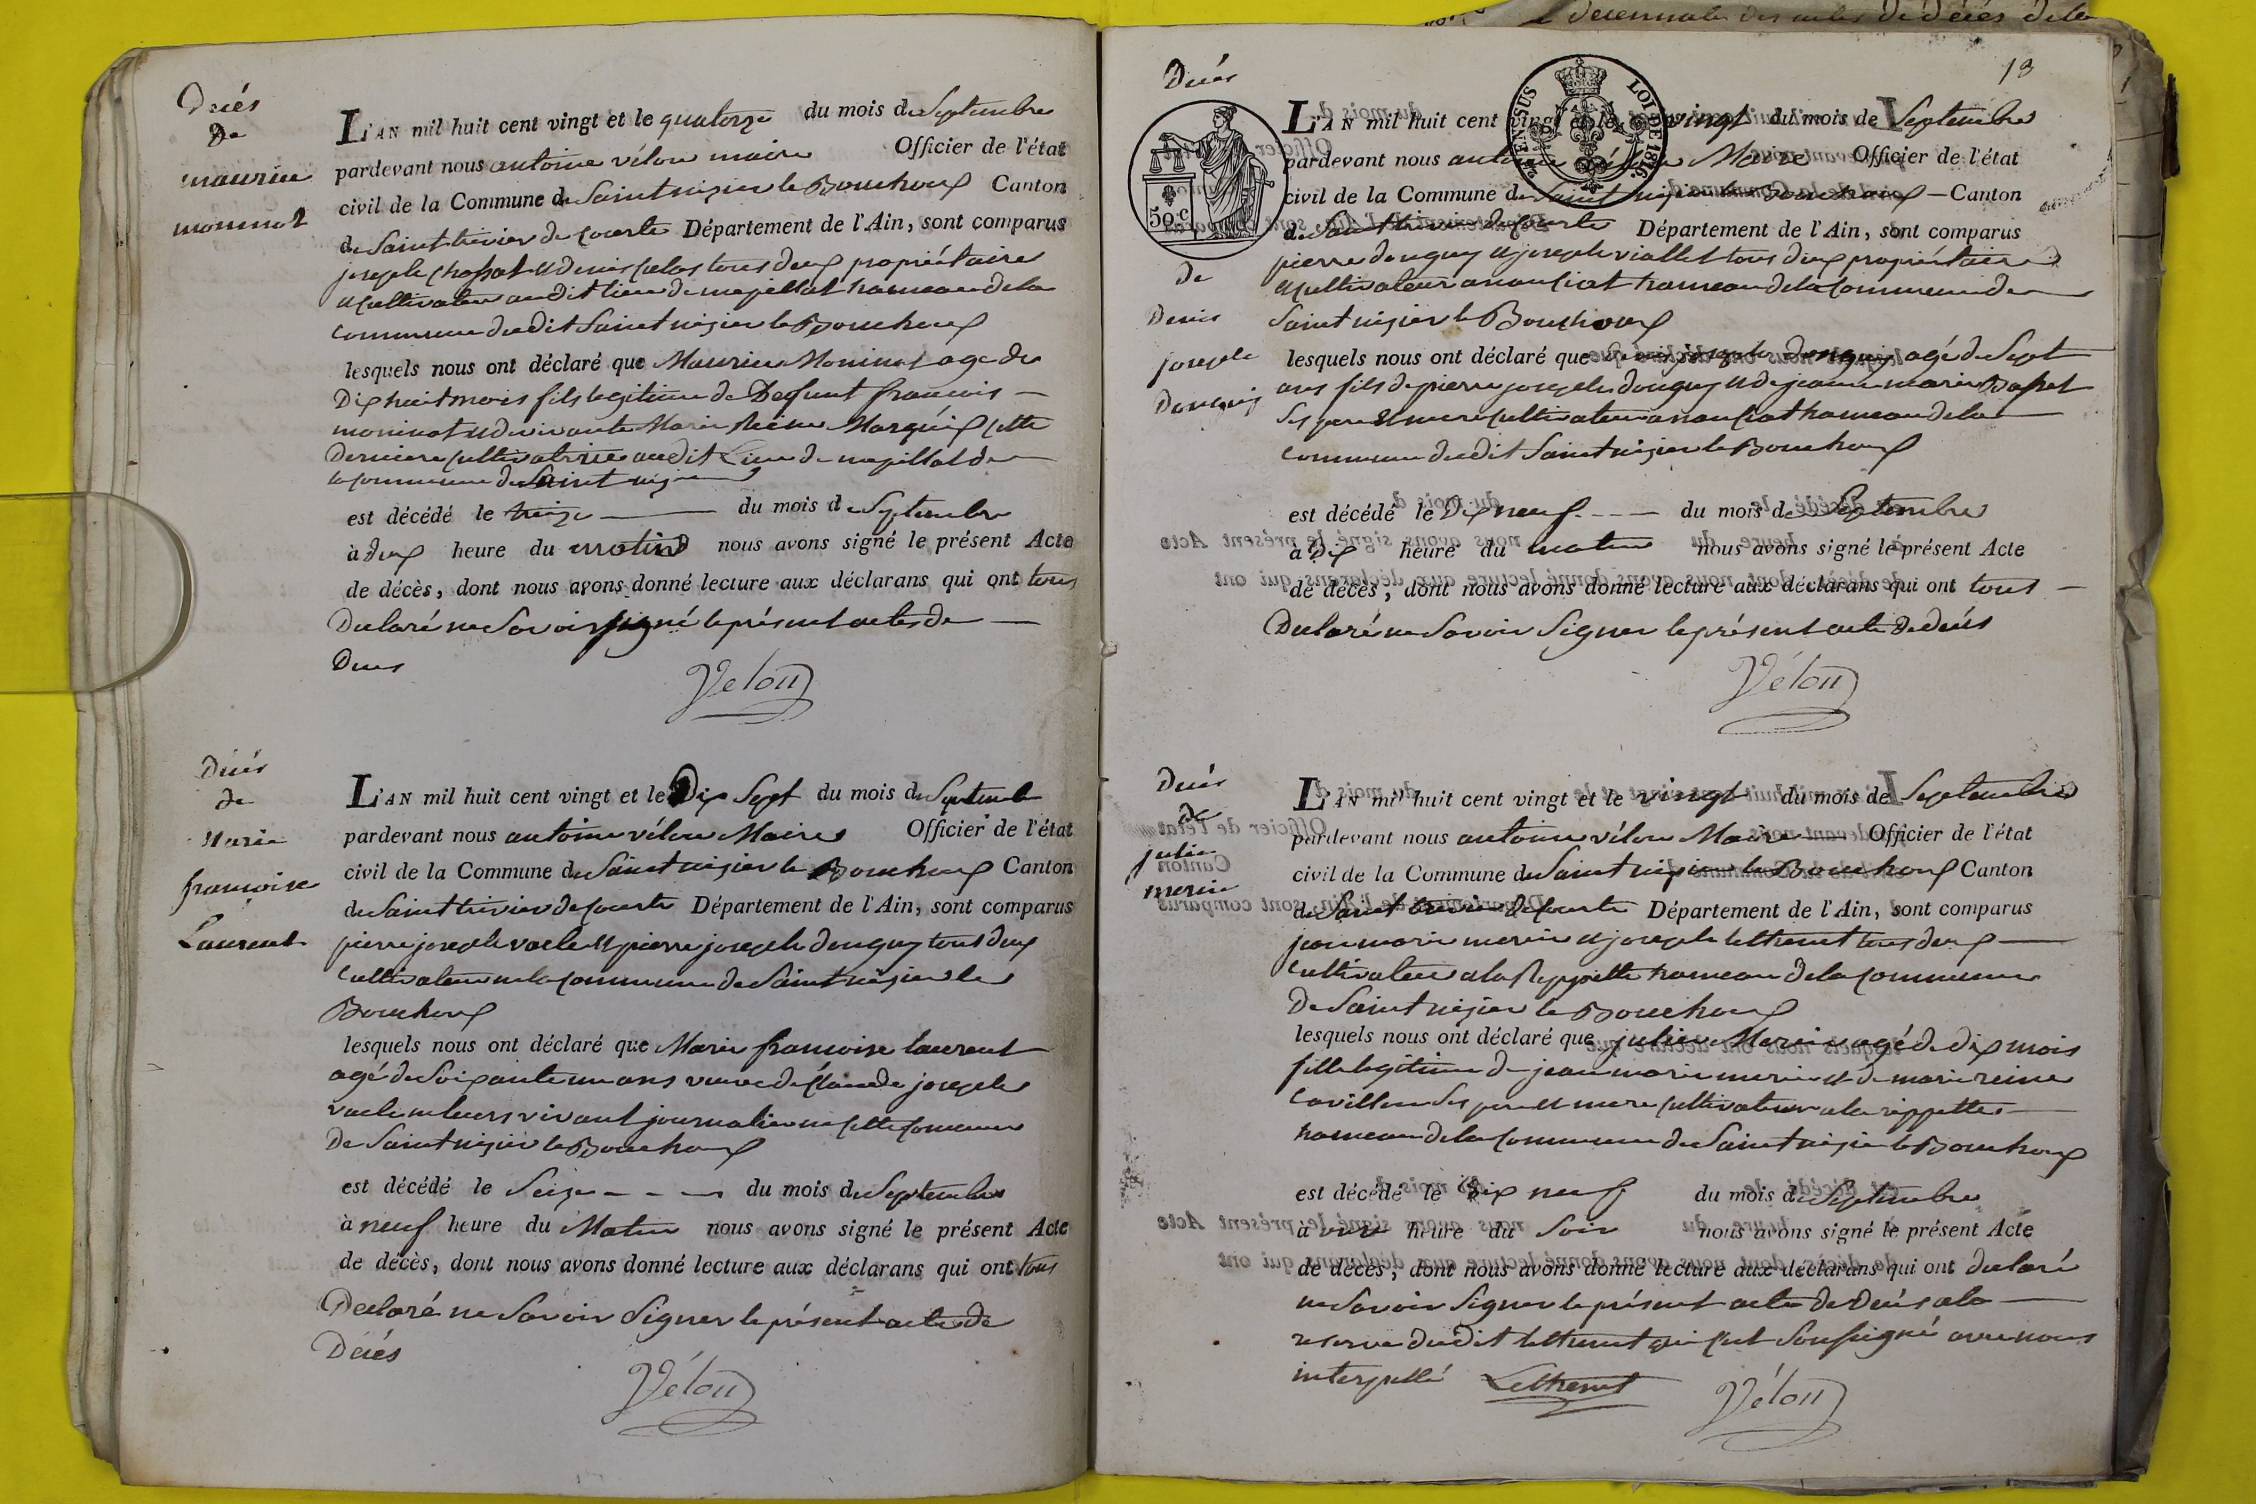 Décés
de
maurice
moninot
L'AN mil huit cent vingt et le quatorze du mois de Septembre
pardevant nous antoine vélon maire Officier de l'état
civil de la Commune de Saint nizier le Bouchoux Canton
de Saint trivier de Courte Département de l'Ain, sont comparus
joseph Chossat et denis tous deux propriétaire
et cultivateur audit lieu de hameau de la
commune dudit Saint nizier le Bouchoux
lesquels nous ont déclaré que Maurice Moninot age de
Dix huit mois fils legitime de Defunt francois
moninot et de vivante Marie Reine cette
derniere cultivatrice audit Lieu de de
la commune de Saint nizier
est décédé le treize du mois de Septembre
à deux heure du matin nous avons signé le présent Acte
de décès, dont nous avons donné lecture aux déclarans qui ont tous
Declaré ne Savoir signé le présent actes de
Deces
Vélon
Décés
de
Marie
françoise
Laurent
L'AN mil huit cent vingt et le Dix Sept du mois de Septembre
pardevant nous antoine vélon Maire Officier de l'état
civil de la Commune de Saint nizier le Bouchoux Canton
de Saint trivier de Courte Département de l'Ain, sont comparus
pierre joseph et pierre joseph douguy tous deux
cultivateur en la commune de Saint nizier le
Bouchoux
lesquels nous ont déclaré que Marie francoise laurent
agé de Soixante un ans veuve de Claude joseph
vivant journalier en cette commune
de Saint nizier le Bouchoux
est décédé le Seize du mois de Septembre
à neuf heure du Matin nous avons signé le présent Acte
de décès, dont nous avons donné lecture aux déclarans qui ont tous
Declaré ne Savoir Signer le présent acte de
Décés
Vélon
13
Décés
2E ENSUS LOI DE 1816.
50.C
de
Denis
joseph
Douguy
L'AN mil huit cent vingt et le vingt du mois de Septembre
pardevant nous antoine vélon Maire Officier de l'état
civil de la Commune de Saint nizier le Bouchoux Canton
de Saint trivier de Courte Département de l'Ain, sont comparus
pierre douguy et joseph viallet tous deux propriétaire
et cultivateur a hameau de la commune de
Saint nizier le Bouchoux
lesquels nous ont déclaré que Denis joseph Douguy agé de Sept
ans fils de pierre joseph douguy et de jeanne marie
Ses pere et mere cultivateur a hameau de la
commune dudit Saint nizier le Bouchoux
est décédé le Dix neuf du mois de Septembre
à Dix heure du matin nous avons signé le présent Acte
de décès, dont nous avons donné lecture aux déclarans qui ont tous
Declaré ne Savoir Signer le présent acte de décés
Vélon
Décés
de
julie
merin
L'AN mil huit cent vingt et le vingt du mois de Septembre
pardevant nous antoine vélon Maire Officier de l'état
civil de la Commune de Saint nizier le Bouchoux Canton
de Saint trivier de Courte Département de l'Ain, sont comparus
jean marie merin et joseph tous deux
cultivateur a la Rippette hameau de la commune
de Saint nizier le Bouchoux
lesquels nous ont déclaré que julie Merin agé de dix mois
fille legitime de jean marie merin et de marie reine
Ses pere et mere cultivateur a la rippette
hameau de la commune de Saint nizier le Bouchoux
est décédé le dix neuf du mois de Septembre
à heure du Soir nous avons signé le présent Acte
de décès, dont nous avons donné lecture aux déclarans qui ont declaré
ne Savoir Signer le présent acte de Décés a la
reserve dudit qui Soussigné avec nous
interpellé Vélon